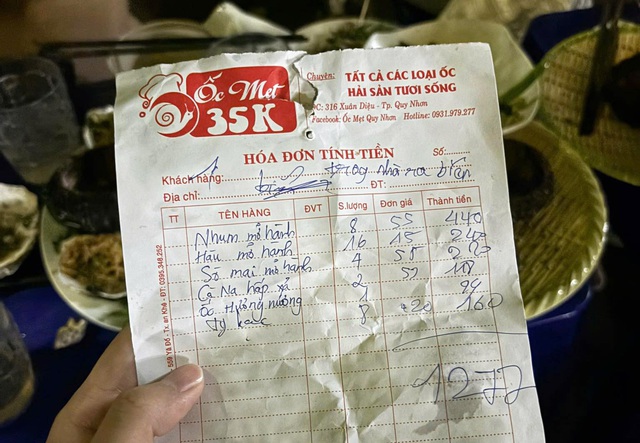 Ốc Mẹt
35K
Chuyên: TẤT CẢ CÁC LOẠI ỐC
HẢI SẢN TƯƠI SỐNG
ĐC: 316 Xuân Diệu - Tp. Quy Nhơn
Facebook: Ốc Mẹt Quy Nhơn Hotline: 0931.979.277
HÓA ĐƠN TÍNH TIỀN
Số:
Khách hàng: trong nhà ra bàn
Địa chỉ: ĐT:
TT TÊN HÀNG ĐVT S.lượng Đơn giá Thành tiền
Nhum mỡ hành 8 55 440
Hàu mỡ hành 16 15 240
Sò mai mỡ hành 4 55 220
2
Ốc Hương nướng 1
8 20 160
1272
An Khê - ĐT: 0395.348.252